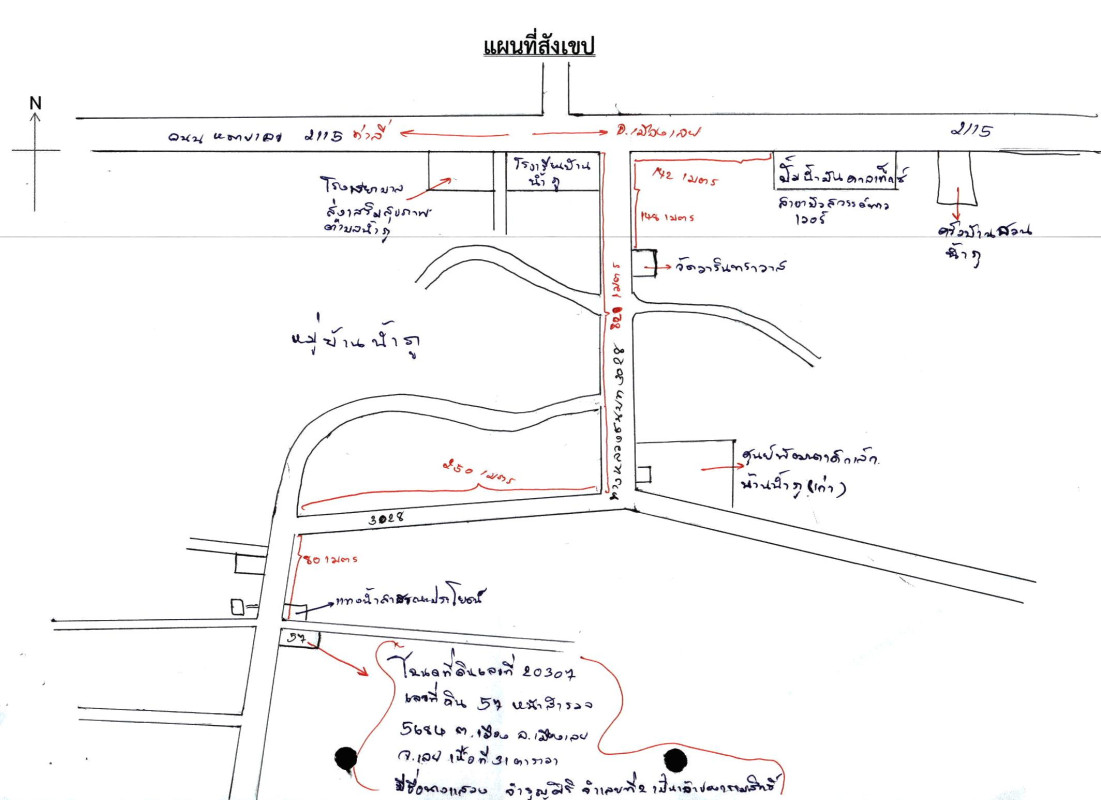 แผนที่สังเขป
N
ถนน หมายเลข 2115 ท่าลี่
อ.เมืองเลย
2115
โรงพยาบาล
ส่งเสริมสุขภาพ
ตำบลน้ำภู
โรงเรียนบ้าน
น้ำภู
142 เมตร
148 เมตร
ปั๊มน้ำมันคาลเท็กซ์
สาขา
ครัวบ้านสวน
น้ำภู
วัดวารินทราวาส
หมู่บ้านน้ำภู
820 เมตร
ทางหลวงชนบท 3028
ศูนย์พัฒนาเด็กเล็ก
บ้านน้ำภู (เก่า)
250 เมตร
3028
80 เมตร
แทงน้ำสาธารณประโยชน์
57
โฉนดที่ดินเลขที่ 20307
เลขที่ดิน 57 หน้าสำรวจ
5684 ต.เมือง อ.เมืองเลย
จ.เลย เนื้อที่ 31 ตารางวา
มีชื่อ จำเลยที่ 2 เป็นเจ้าของกรรมสิทธิ์